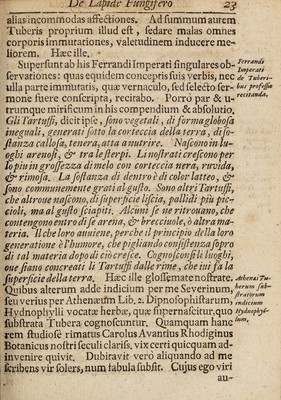 De Lapide Fungifero 23
alias incommodas affectiones. Ad summum autem
Tuberis proprium illud est, sedare malas omnes
corporis immutationes, valetudinem inducere me-
liorem. Hæc ille.
Supersunt ab his Ferrandi Imperati singulares ob-
servationes: quas equidem conceptis suis verbis, nec
ulla parte immutatis, quæ vernaculo, sed selecto ser-
mone fuere conscripta, recitabo. Porrò par & u-
trumque mirificum in his compendium & absolutio.
Gli Tartuffi, dicit ipse, sono vegetali, di forma globosa
ineguali, generati sotto la corteccia della terra, di so-
stanza callosa, tenera, atta a nutrire. Nascono in luo-
ghi arenosi, & tra lesterpi. Li nostrati crescono per
lo piu in grossezza di melo con corteccia nera, ruvida,
& rimosa. La sostanza di dentro è di color latteo, &
sono communemente grati al gusto. Sono altri Tartuffi,
che altroue nascono, di superficie liscia, pallidi più pic-
cioli, ma al gusto sciapiti. Alcuni se ne ritrouano, che
contengono entro di se arena, & breccivole, ò altra ma-
teria. Il che loro auuiene, perche il principio della loro
generatione è l'humore, che pigliando consistenza sopro
di tal materia dopo di ciò cresce. Cognosconsi li luoghi,
oue siano concreati li Tartuffi dalle rime, che iui fa la
superficie della terra. Hæc ille glossemate nostrate.
Quibus alterum adde indicium per me Severinum,
seu verius per Athenæum Lib. 2. Dipnosophistarum,
Hydnophylli vocatæ herbæ, quæ supernascitur, quo
substrata Tubera cognoscuntur. Quamquam hanc
rem studiosè rimatus Carolus Avantius Rhodiginus
Botanicus nostri seculi clariss. vix certi quicquam ad-
invenire quivit. Dubitavit verò aliquando ad me
scribens vir solers, num fabula subsit. Cujus ego viri
au-
Ferrandi
Imperati
de Tuberi-
bus professio
recitanda.
Athenæi Tu-
berum sub-
stratorum
indicium
Hydnophyl-
lum.